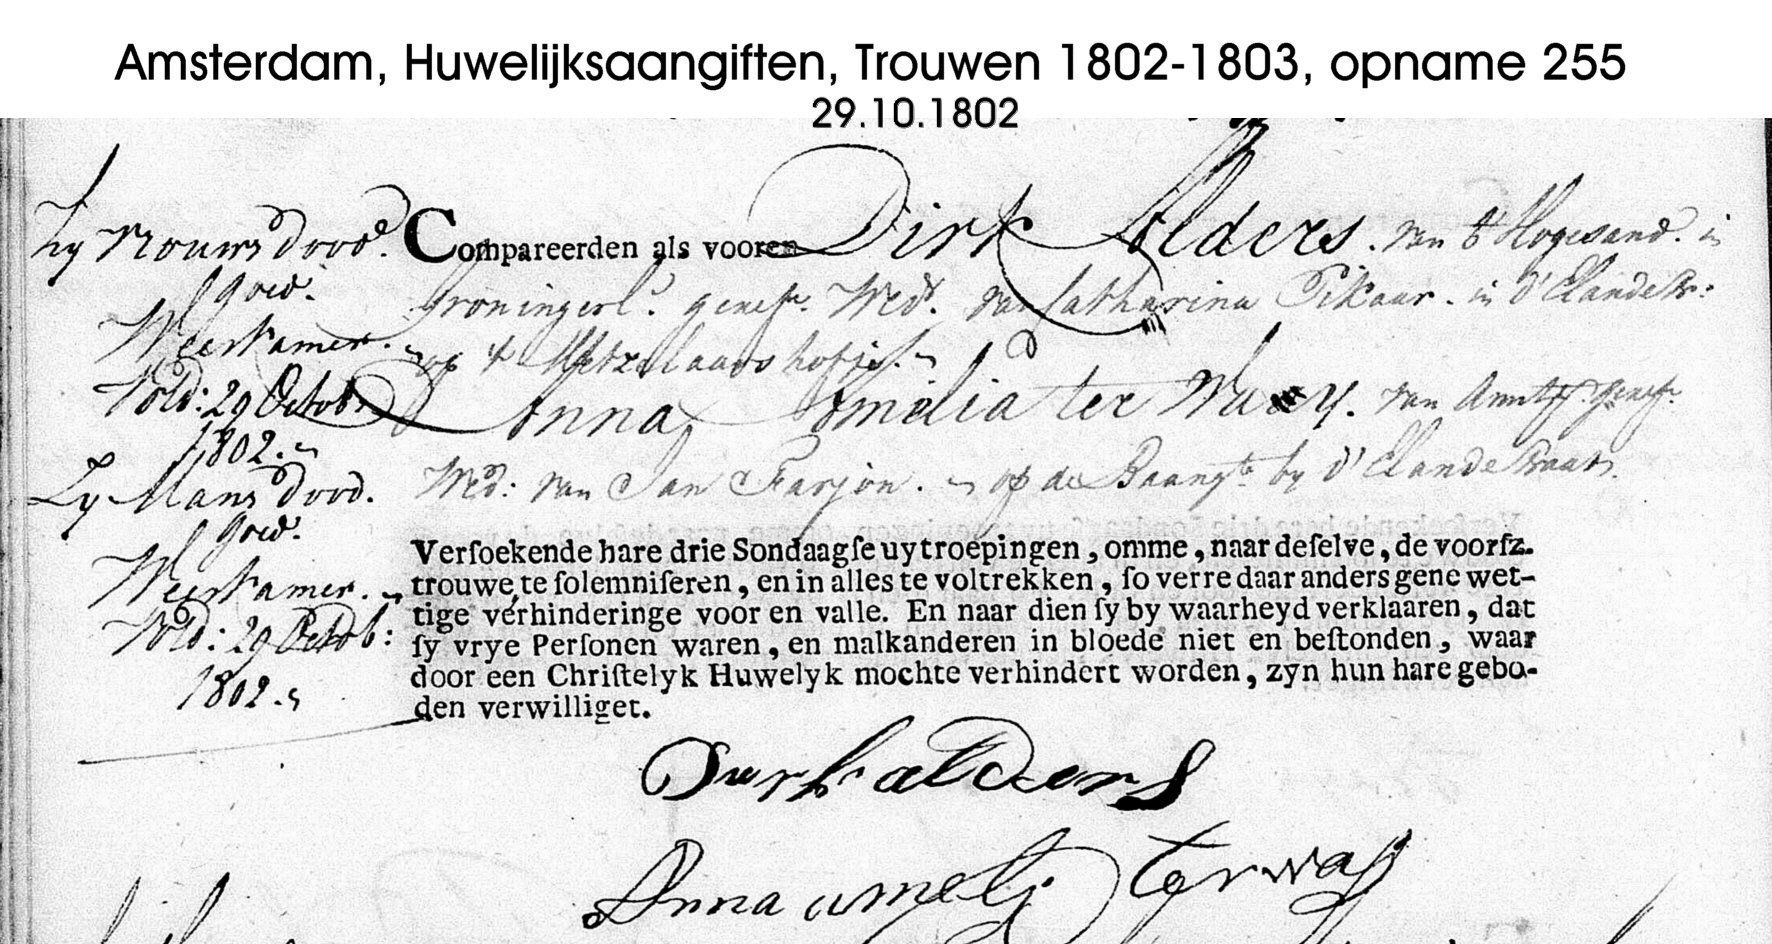 Amsterdam, Huwelijksaangiften, Trouwen 1802-1803, opname 255
29.10.1802
Compareerden als vooren Dirk Alders. van 't Hogesand. in
Groningerl.d geref.r Wed.r van Catharina Pikaar. in d'Elandstr:
op 't Metzelaars hofje.
Anna Amelia ter Way. van Amst. geref.
Wed: van Jan Farjon. op de Baangt. by d'Elandstraat.
Versoekende hare drie Sondaagse uytroepingen, omme, naar deselve, de voorsz.
trouwe, te solemniseren, en in alles te voltrekken, so verre daar anders gene wet-
tige verhinderinge voor en valle. En naar dien sy by waarheyd verklaaren, dat
sy vrye Personen waren, en malkanderen in bloede niet en bestonden, waar
door een Christelyk Huwelyk mochte verhindert worden, zyn hun hare gebo-
den verwilliget.
Zy Vrouws dood.
goed.
Weeskamer.
Vold: 29 Octobr
1802.
Zy Mans dood.
goed.
Weeskamer.
Vold: 29 Octob:
1802.
Durk alders
Anna ameli ter way